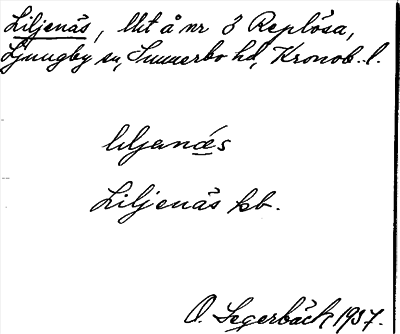 Liljenäs, lht å nr 3 Replösa,
Ljungby sn, Sunnerbo hd, Kronob. l.
liljanä́s
Liljenäs kb.
O. Segerbäck 1937.